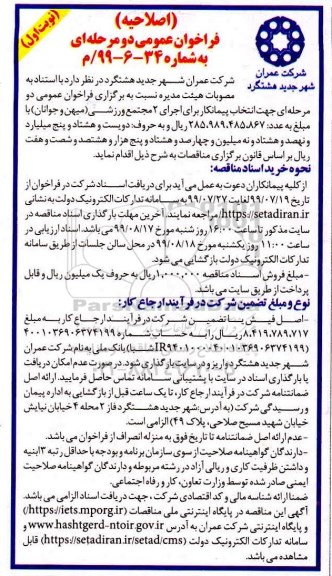 (نوبت اول)
(اصلاحیه)
فراخوان عمومی دو مرحله‌ای
به شماره ۳۴-۶-۹۹/م
شرکت عمران
شهر جدید هشتگرد
شرکت عمران شهر جدید هشتگرد در نظر دارد با استناد به
مصوبات هیئت مدیره نسبت به برگزاری فراخوان عمومی دو
مرحله‌ای جهت انتخاب پیمانکار برای اجرای ۲ مجتمع ورزشی (میهن و جوانان) با
مبلغ به عدد: ۲۸۵،۹۸۹،۴۸۵،۸۶۷ ریال و به حروف: دویست و هشتاد و پنج میلیارد
و نهصد و هشتاد و نه میلیون و چهارصد و هشتاد و پنج هزار و هشتصد و شصت و هفت
ریال بر اساس قانون برگزاری مناقصات به شرح ذیل اقدام نماید.
نحوه خرید اسناد مناقصه:
از کلیه پیمانکاران دعوت به عمل می آید برای دریافت اسناد شرکت در فراخوان از
۹۹/۰۷/۱۹ لغایت ۹۹/۰۷/۲۷ به سامانه تدارکات الکترونیک دولت به نشانی
https://setadiran.ir مراجعه نمایند. آخرین مهلت بارگذاری اسناد مناقصه در
سایت مذکور تا ساعت ۱۶:۰۰ روز شنبه مورخ ۹۹/۰۸/۱۷ می باشد. اسناد ارزیابی در
ساعت ۱۱:۰۰ روز یکشنبه مورخ ۹۹/۰۸/۱۸ در محل سالن جلسات از طریق سامانه
تدارکات الکترونیک دولت بازگشایی می شود.
- مبلغ فروش اسناد مناقصه ۱،۰۰۰،۰۰۰ ریال به حروف یک میلیون ریال و قابل
پرداخت از طریق سایت می باشد.
نوع و مبلغ تضمین شرکت در فرآیند ارجاع کار:
- اصل فیش یا تضمین شرکت در فرآیند ارجاع کار به مبلغ
۸،۴۱۹،۷۸۹،۷۱۷ ریال به حساب شماره ۴۰۰۱۰۳۶۹۰۶۳۷۴۱۹۹
بانک ملی به نام شرکت عمران
شهر جدید هشتگرد واریز و در سایت بارگذاری شود. در صورت عدم امکان دریافت
یا بارگذاری اسناد در سایت با پشتیبانی سامانه تماس حاصل فرمایید. ارائه اصل
ضمانتنامه شرکت در فرآیند ارجاع کار، تا یک ساعت قبل از بازگشایی به اداره پیمان
و رسیدگی شرکت (به آدرس: شهر جدید هشتگرد فاز ۲ محله ۴ خیابان نیایش
خیابان شهید مسیح صلاحی، پلاک ۴۹) الزامی است.
- عدم ارائه اصل ضمانتنامه تا تاریخ فوق به منزله انصراف از فراخوان می باشد.
- دارندگان گواهینامه صلاحیت از سوی سازمان برنامه و بودجه با حداقل رتبه ۳ ابنیه
و داشتن ظرفیت کاری و ریالی آزاد در رشته مربوطه و دارندگان گواهینامه صلاحیت
ایمنی صادر شده توسط وزارت تعاون، کار و رفاه اجتماعی.
ضمنا ارائه شناسه ملی و کد اقتصادی شرکت، جهت دریافت اسناد الزامی می باشد.
آگهی این مناقصه در پایگاه اینترنتی ملی مناقصات (https://iets.mporg.ir)
و پایگاه اینترنتی شرکت عمران به آدرس www.hashtgerd-ntoir.gov.ir و
سامانه تدارکات الکترونیک دولت (https://setadiran.ir/setad/cms) قابل
مشاهده می باشد.